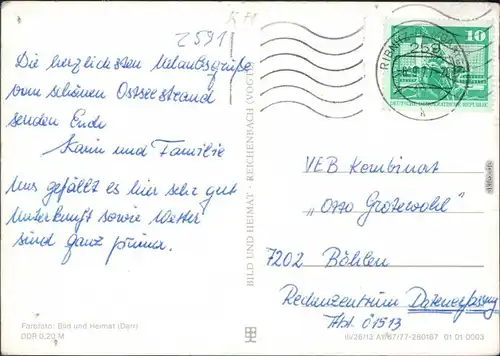 2591
Die herzlichsten Urlaubsgrüße
vom schönen Ostseestrand
senden Euch
Karin und Familie
Uns gefällt es hier sehr gut
Unterkunft sowie Wetter
sind ganz prima.
Farbfoto: Bild und Heimat (Darr)
DDR 0,20 M
BILD UND HEIMAT · REICHENBACH (VOGTL)
10
DEUTSCHE DEMOKRATISCHE REPUBLIK
RIBNITZ
259
VEB Kombinat
„Otto Grotewohl"
7202 Böhlen
Rechenzentrum Datenerfassung
Abt. 01513
III/26/13 A1/67/77-280187 01 01 0003